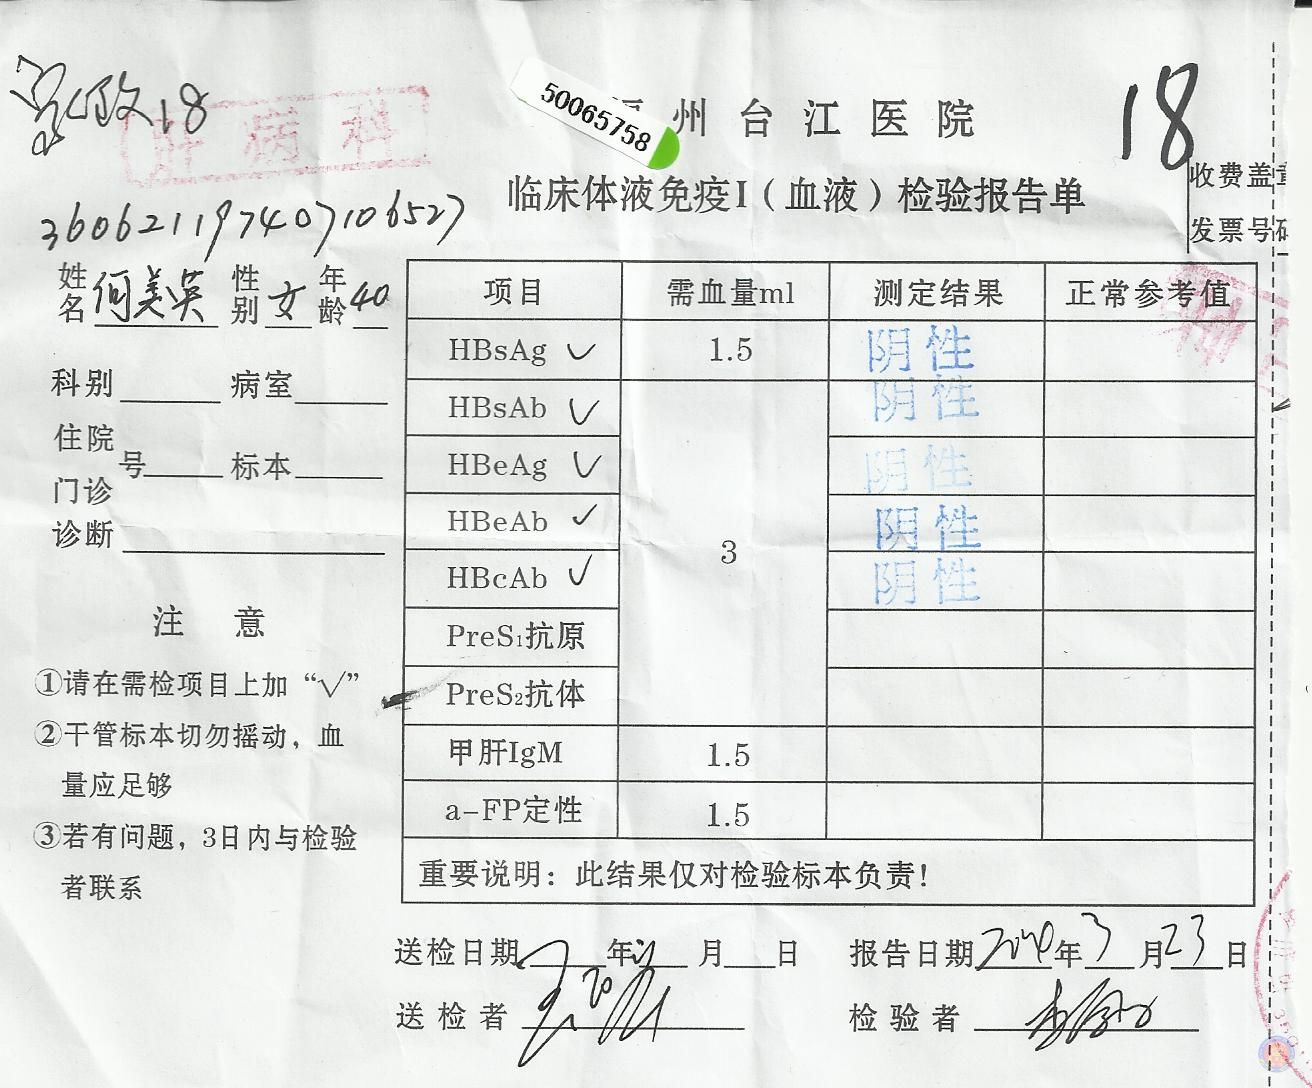 18
肝病科
50065758
州台江医院
18
临床体液免疫I(血液)检验报告单
收费盖章
发票号码
姓名 何美英 性别 女 年龄 40
项目 需血量ml 测定结果 正常参考值
HBsAg ✓ 1.5 阴性
HBsAb ✓ 阴性
HBeAg ✓ 阴性
HBeAb ✓ 阴性
HBcAb ✓ 阴性
3
PreS₁抗原
PreS₂抗体
甲肝IgM 1.5
a-FP定性 1.5
重要说明:此结果仅对检验标本负责!
科别 病室
住院
号 标本
门诊
诊断
注 意
①请在需检项目上加“√”
②干管标本切勿摇动,血
量应足够
③若有问题,3日内与检验
者联系
送检日期 年 月 日 报告日期 年3月23日
送检者 检验者